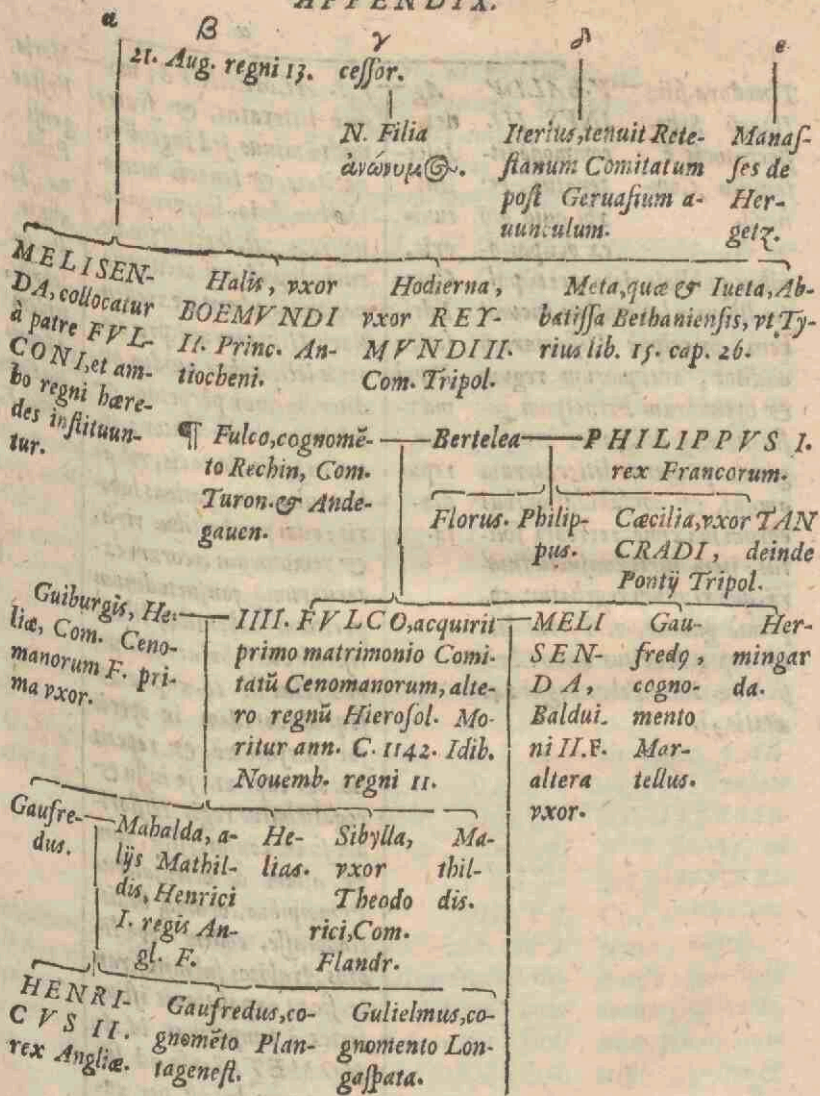 APPENDIX.
α β γ δ ε
21. Aug. regni 13.
ceſſor.
N. Filia
ἀνώνυμ🌀.
Iterius, tenuit Rete-
ſtianum Comitatum
poſt Geruaſium a-
uunculum.
Manaſ-
ſes de
Her-
getz.
MELISEN-
DA, collocatur
à patre FVL-
CONI, et am-
bo regni hære-
des inſtituun-
tur.
Halis, vxor
BOEMVNDI
II. Princ. An-
tiocheni.
Hodierna,
vxor REY-
MVNDI II.
Com. Tripol.
Meta, quæ & Iueta, Ab-
batiſſa Bethanienſis, vt Ty-
rius lib. 15. cap. 26.
¶ Fulco, cognomẽ-
to Rechin, Com.
Turon. & Ande-
gauen.
Bertelea
PHILIPPVS I.
rex Francorum.
Florus.
Philip-
pus.
Cæcilia, vxor TAN
CRADI, deinde
Pontij Tripol.
Guiburgis, He-
liæ, Com. Ceno-
manorum F. pri-
ma vxor.
IIII. FVLCO, acquirit
primo matrimonio Comi-
tatũ Cenomanorum, alte-
ro regnũ Hieroſol. Mo-
ritur ann. C. 1142. Idib.
Nouemb. regni 11.
MELI
SEN-
DA,
Baldui.
ni II. F.
altera
vxor.
Gau-
fredꝰ,
cogno-
mento
Mar-
tellus.
Her-
mingar
da.
Gaufre-
dus.
Mahalda, a-
lijs Mathil-
dis, Henrici
I. regis An-
gl. F.
He-
lias.
Sibylla,
vxor
Theodo
rici, Com.
Flandr.
Ma-
thil-
dis.
HENRI-
CVS II.
rex Angliæ.
Gaufredus, co-
gnomẽto Plan-
tageneſt.
Gulielmus, co-
gnomento Lon-
gaſpata.